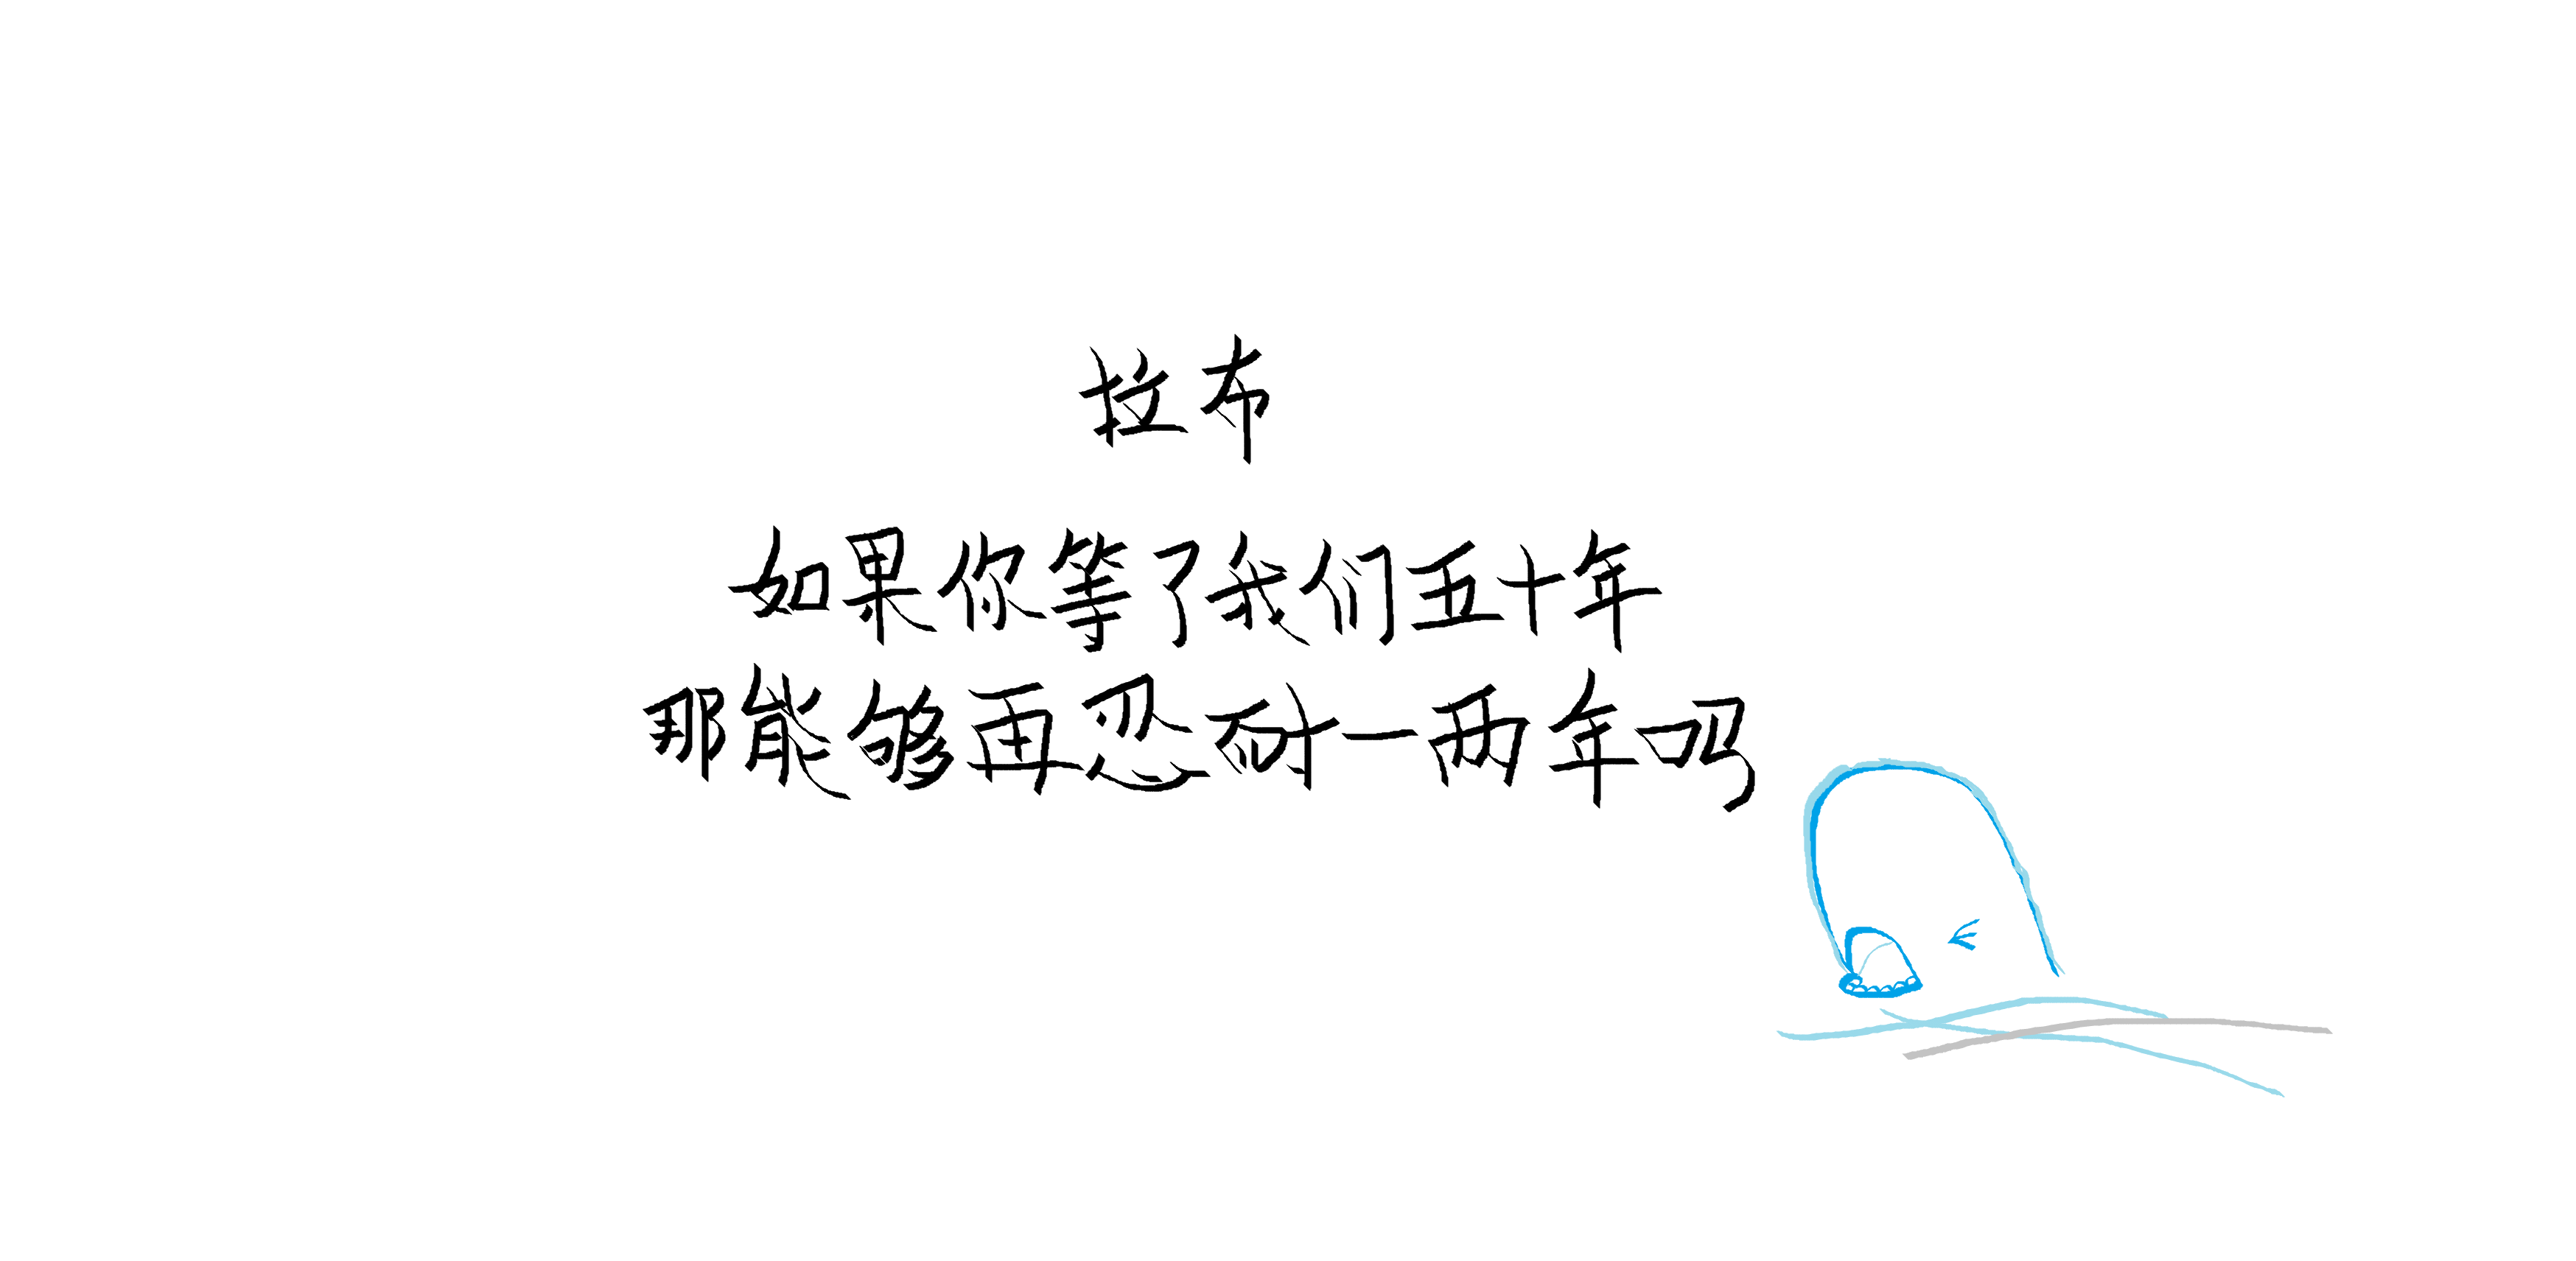 拉布
如果你等了我们五十年
那能够再忍耐一两年吗